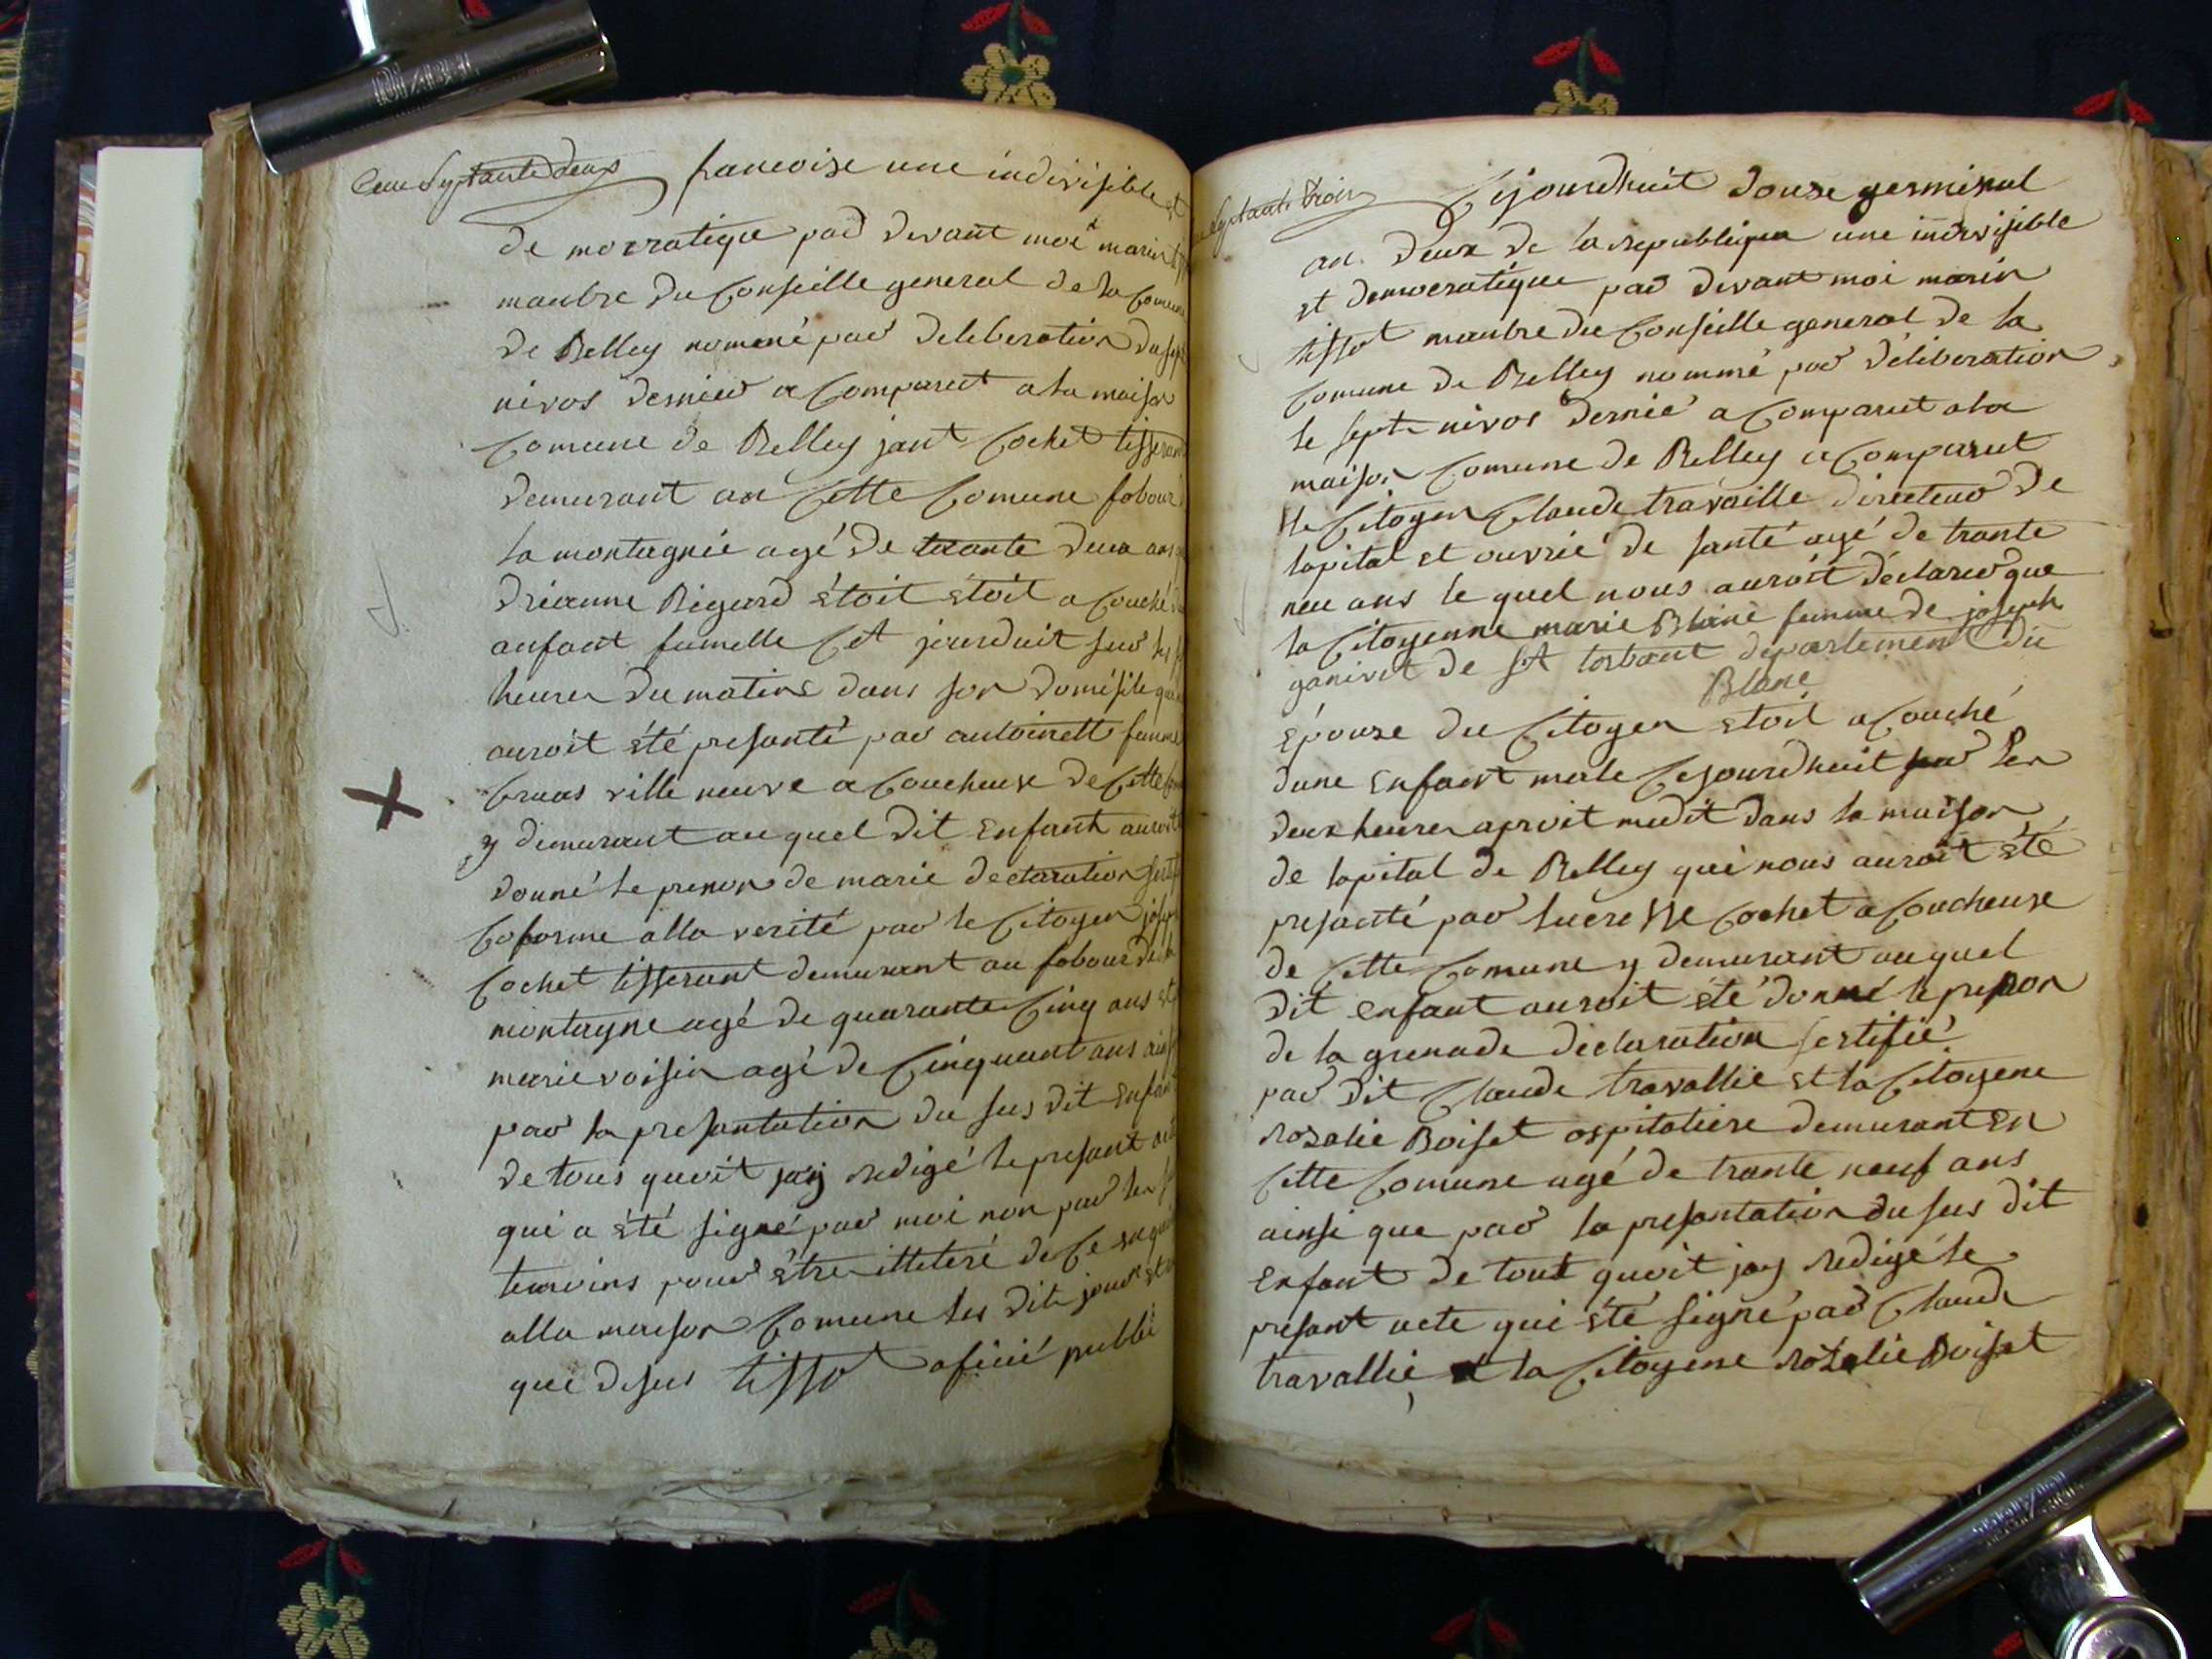 Cent Septante deux francoise une indivisible et
de mocratique par devant moi marin
manbre du Conseille general de la Comune
de Belley nommé par deliberation du sept
nivos dernier a Comparut a la maison
Comune de Belley jant Cochet tisserant
demurant an Cette Comune fobour
la montagnie agé de trante deux ans
drianne Rigard étoit étoit acouché
anfant fumelle Cet jourduit sur les
heures du matins dans son domisile
auroit été presanté par antoinette femme
ville neuve a Coucheuse de Cette
y demurant auquel dit Enfant auroit
donné le prenon de marie declaration
Coforme alla verité par le Citoyen joseph
Cochet tisserant demurant au fobour de la
montagne agé de quarante Cinq ans et
marie voisin agé de Cinquant ans
par la presantation du sus dit Enfant
de tous quoit jay redigé le presant
qui a été signé par moi non par les
temoins pour être illeteré de Ce
alla maison Comune les dit jour et
que desus tissot ofisié publi
Septante trois Cejourdhuit douze germinal
an deux de la republique une indivisible
et democratique par devant moi marin
tissot manbre du Conseille general de la
Comune de Belley nommé par déliberation
le septe nivos dernié a Comparut a la
maison Comune de Belley a Comparut
le Citoyen Claude travaille directeur de
lopital et ouvrié de santé agé de trante
neu ans le quel nous auroit déclarer que
la Citoyenne marie Blanc femme de joseph
ganivet de St departement du
Blanc
Epouze du Citoyen etoit a Couché
dune Enfant male Cejourdhuit sur Les
deux heures aproit medit dans la maison
de lopital de Belley qui nous auroit été
presanté par lucresse Cochet a Coucheuse
de Cette Comune y demurant auquel
dit enfant auroit été donné le prenon
de la grenade declaration sertifié
par dit Claude travallie et la Citoyene
rozalie Boiset ospitaliere demurant En
Cette Comune agé de trante neuf ans
ainsi que par la presantation du sus dit
Enfant de tout quoit jay redigé le
presant acte qui été signé par Claude
travallie et la Citoyene rozalie Boiset